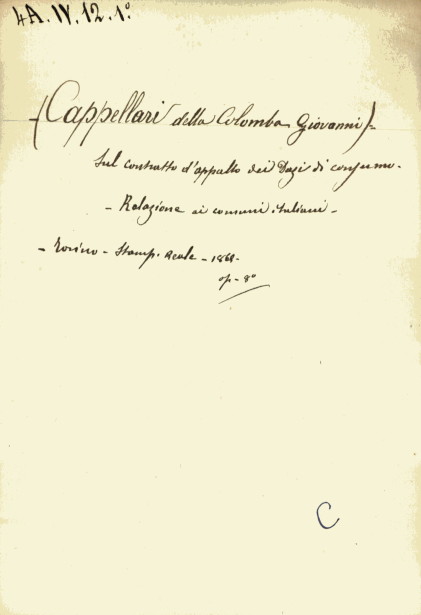 4A. IV. 12. 1º
(Cappellari della Colomba Giovanni)=
Sul contratto d'appalto dei Dazi di consumo.
- Relazione ai comuni italiani -
- Torino - Stamp. Reale - 1868 -
op - 8º
C